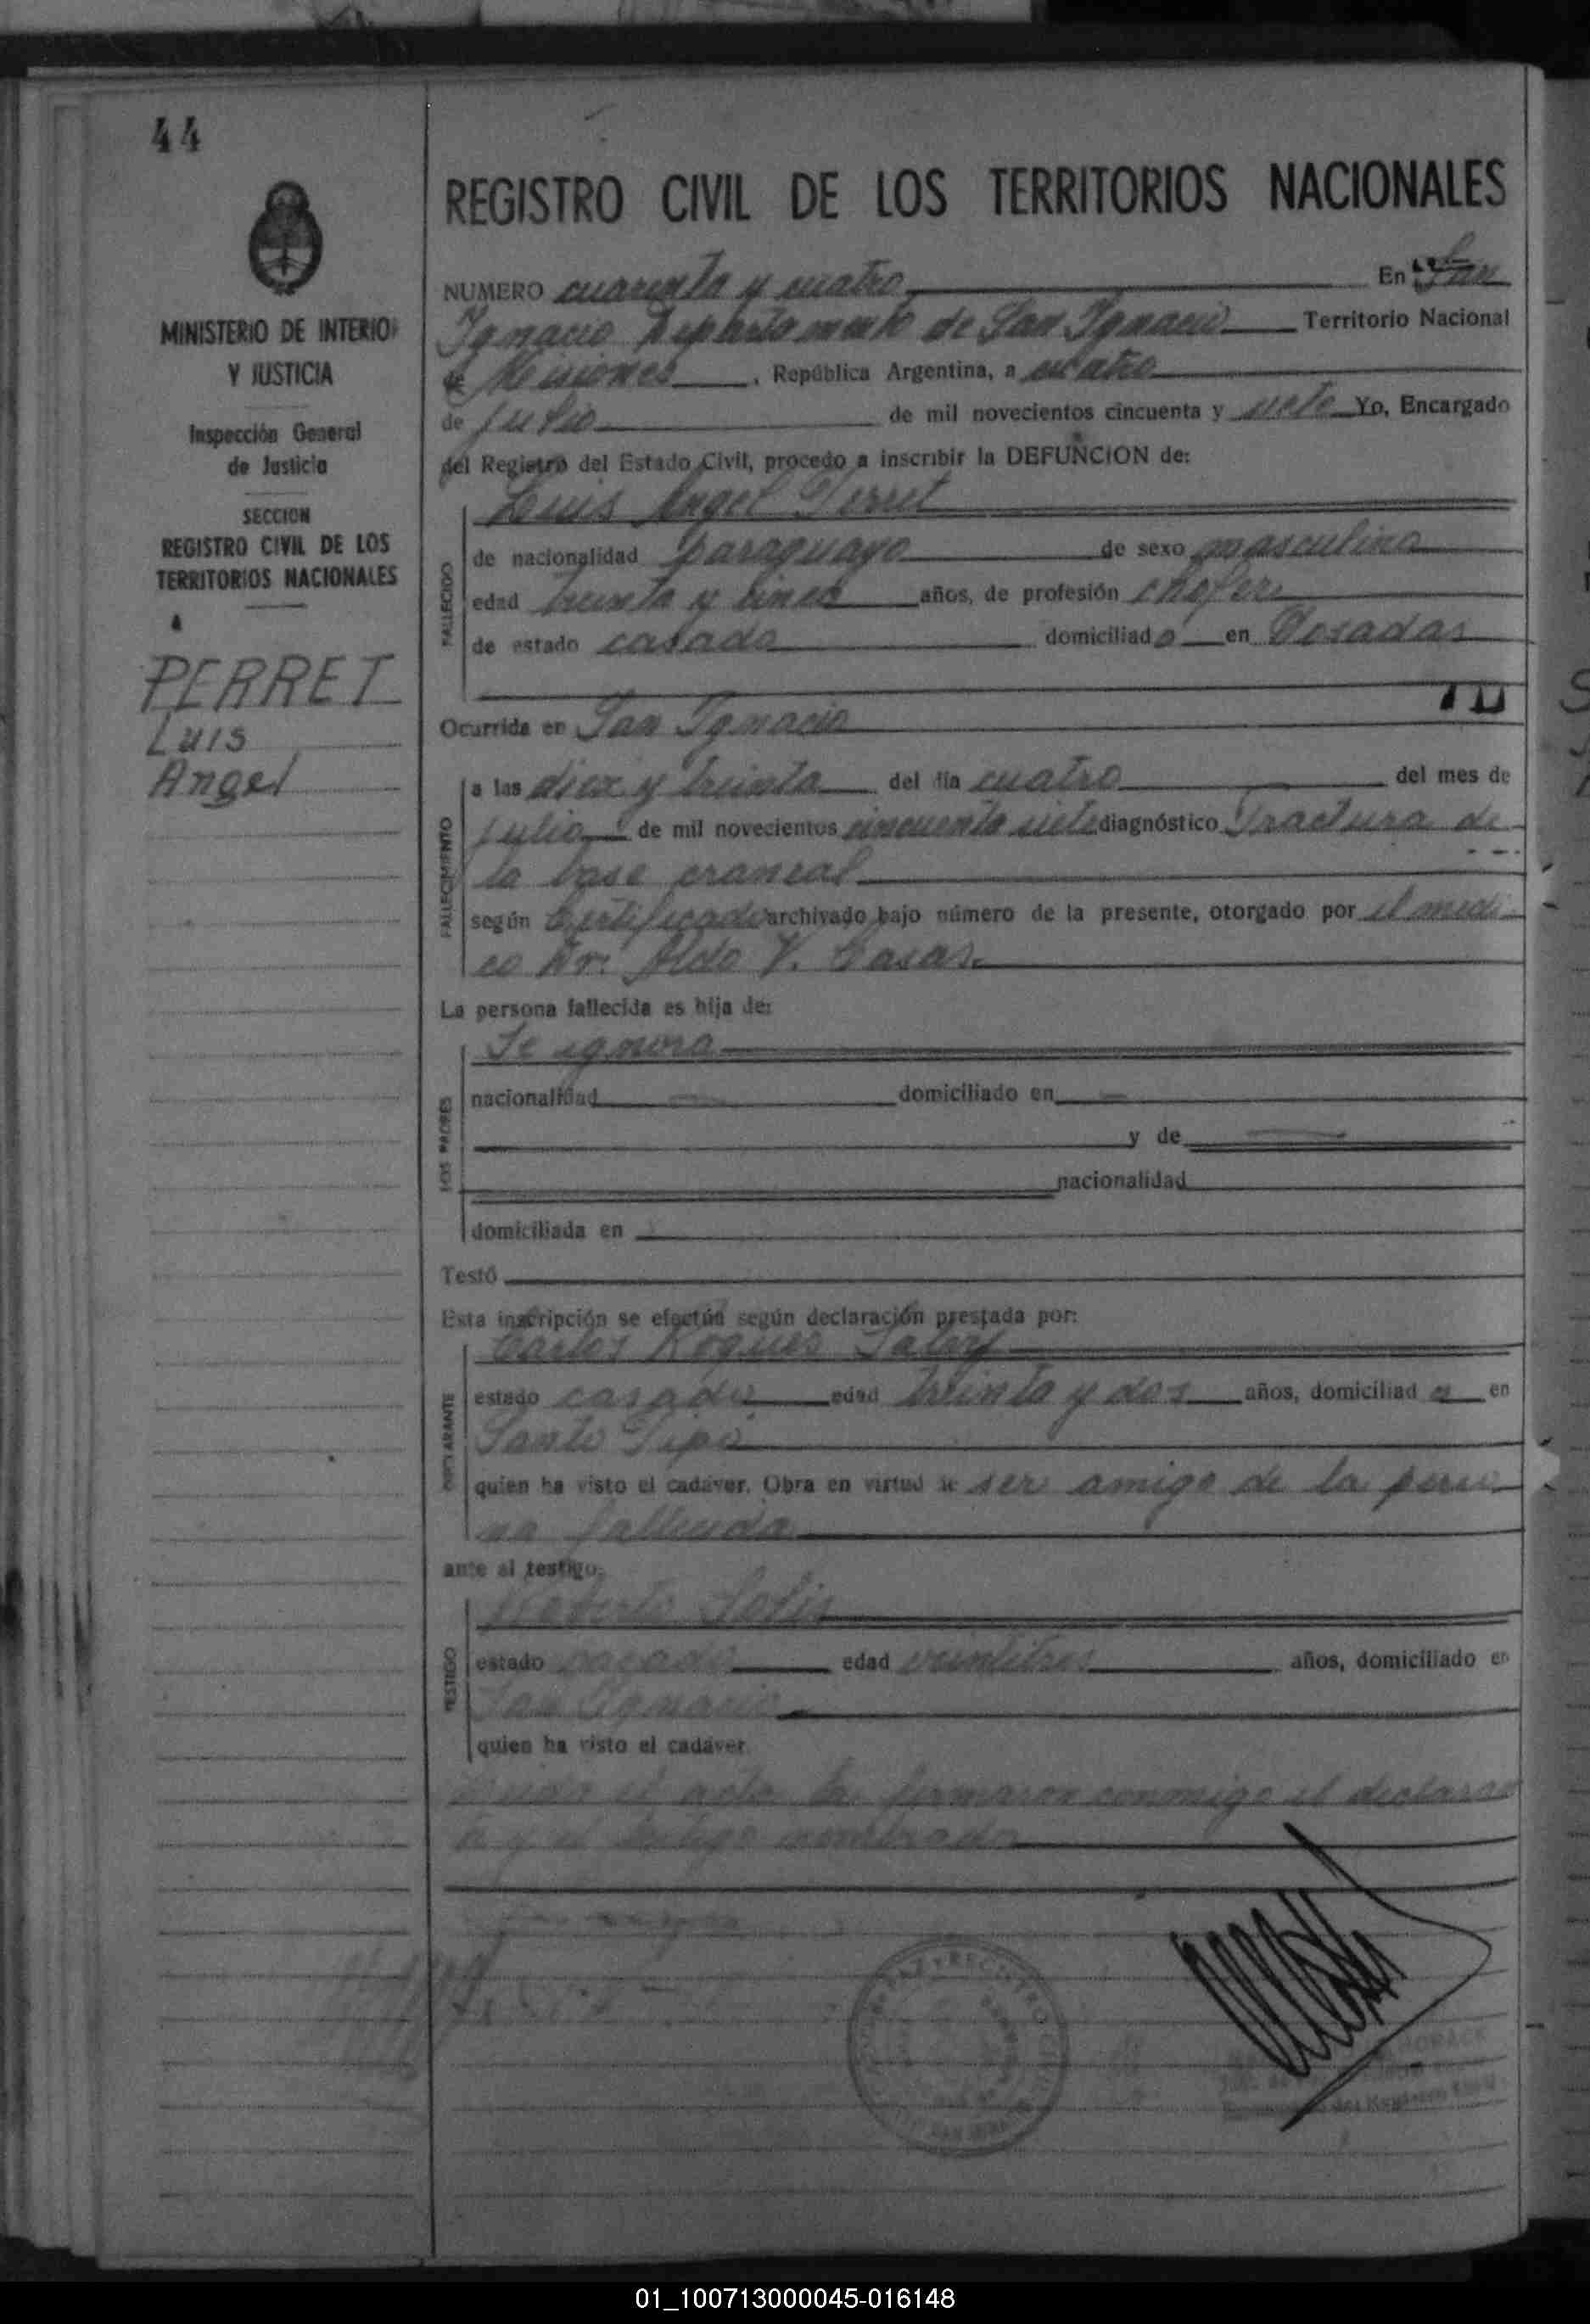 44
MINISTERIO DE INTERIOR
Y JUSTICIA
Inspección General
de Justicia
SECCION
REGISTRO CIVIL DE LOS
TERRITORIOS NACIONALES
PERRET
Luis
Angel
REGISTRO CIVIL DE LOS TERRITORIOS NACIONALES
NUMERO cuarenta y cuatro En San
Ignacio Departamento de San Ignacio Territorio Nacional
de Misiones, República Argentina, a cuatro
de julio de mil novecientos cincuenta y siete Yo, Encargado
del Registro del Estado Civil, procedo a inscribir la DEFUNCION de:
Luis Angel Perret
FALLECIDO
de nacionalidad paraguayo de sexo masculino
edad treinta y cinco años, de profesión chofer
de estado casado domiciliado en Posadas
Ocurrida en San Ignacio
FALLECIMIENTO
a las diez y treinta del día cuatro del mes de
julio de mil novecientos cincuenta siete diagnóstico Fractura de
la base craneal
según Certificado archivado bajo número de la presente, otorgado por el médi
co Dr. Aldo V. Casas.
La persona fallecida es hija de:
LOS PADRES
Se ignora
nacionalidad domiciliado en
y de
nacionalidad
domiciliada en
Testó
Esta inscripción se efectúa según declaración prestada por:
DECLARANTE
Carlos Roques
estado casado edad treinta y dos años, domiciliado en
Santo Pipó
quien ha visto el cadáver. Obra en virtud de ser amigo de la perso
na fallecida
ante el testigo:
TESTIGO
Solis
estado casado edad veintitres años, domiciliado en
San Ignacio
quien ha visto el cadáver.
el acta la firmaron conmigo el declaran
te y el testigo nombrado
01_100713000045-016148